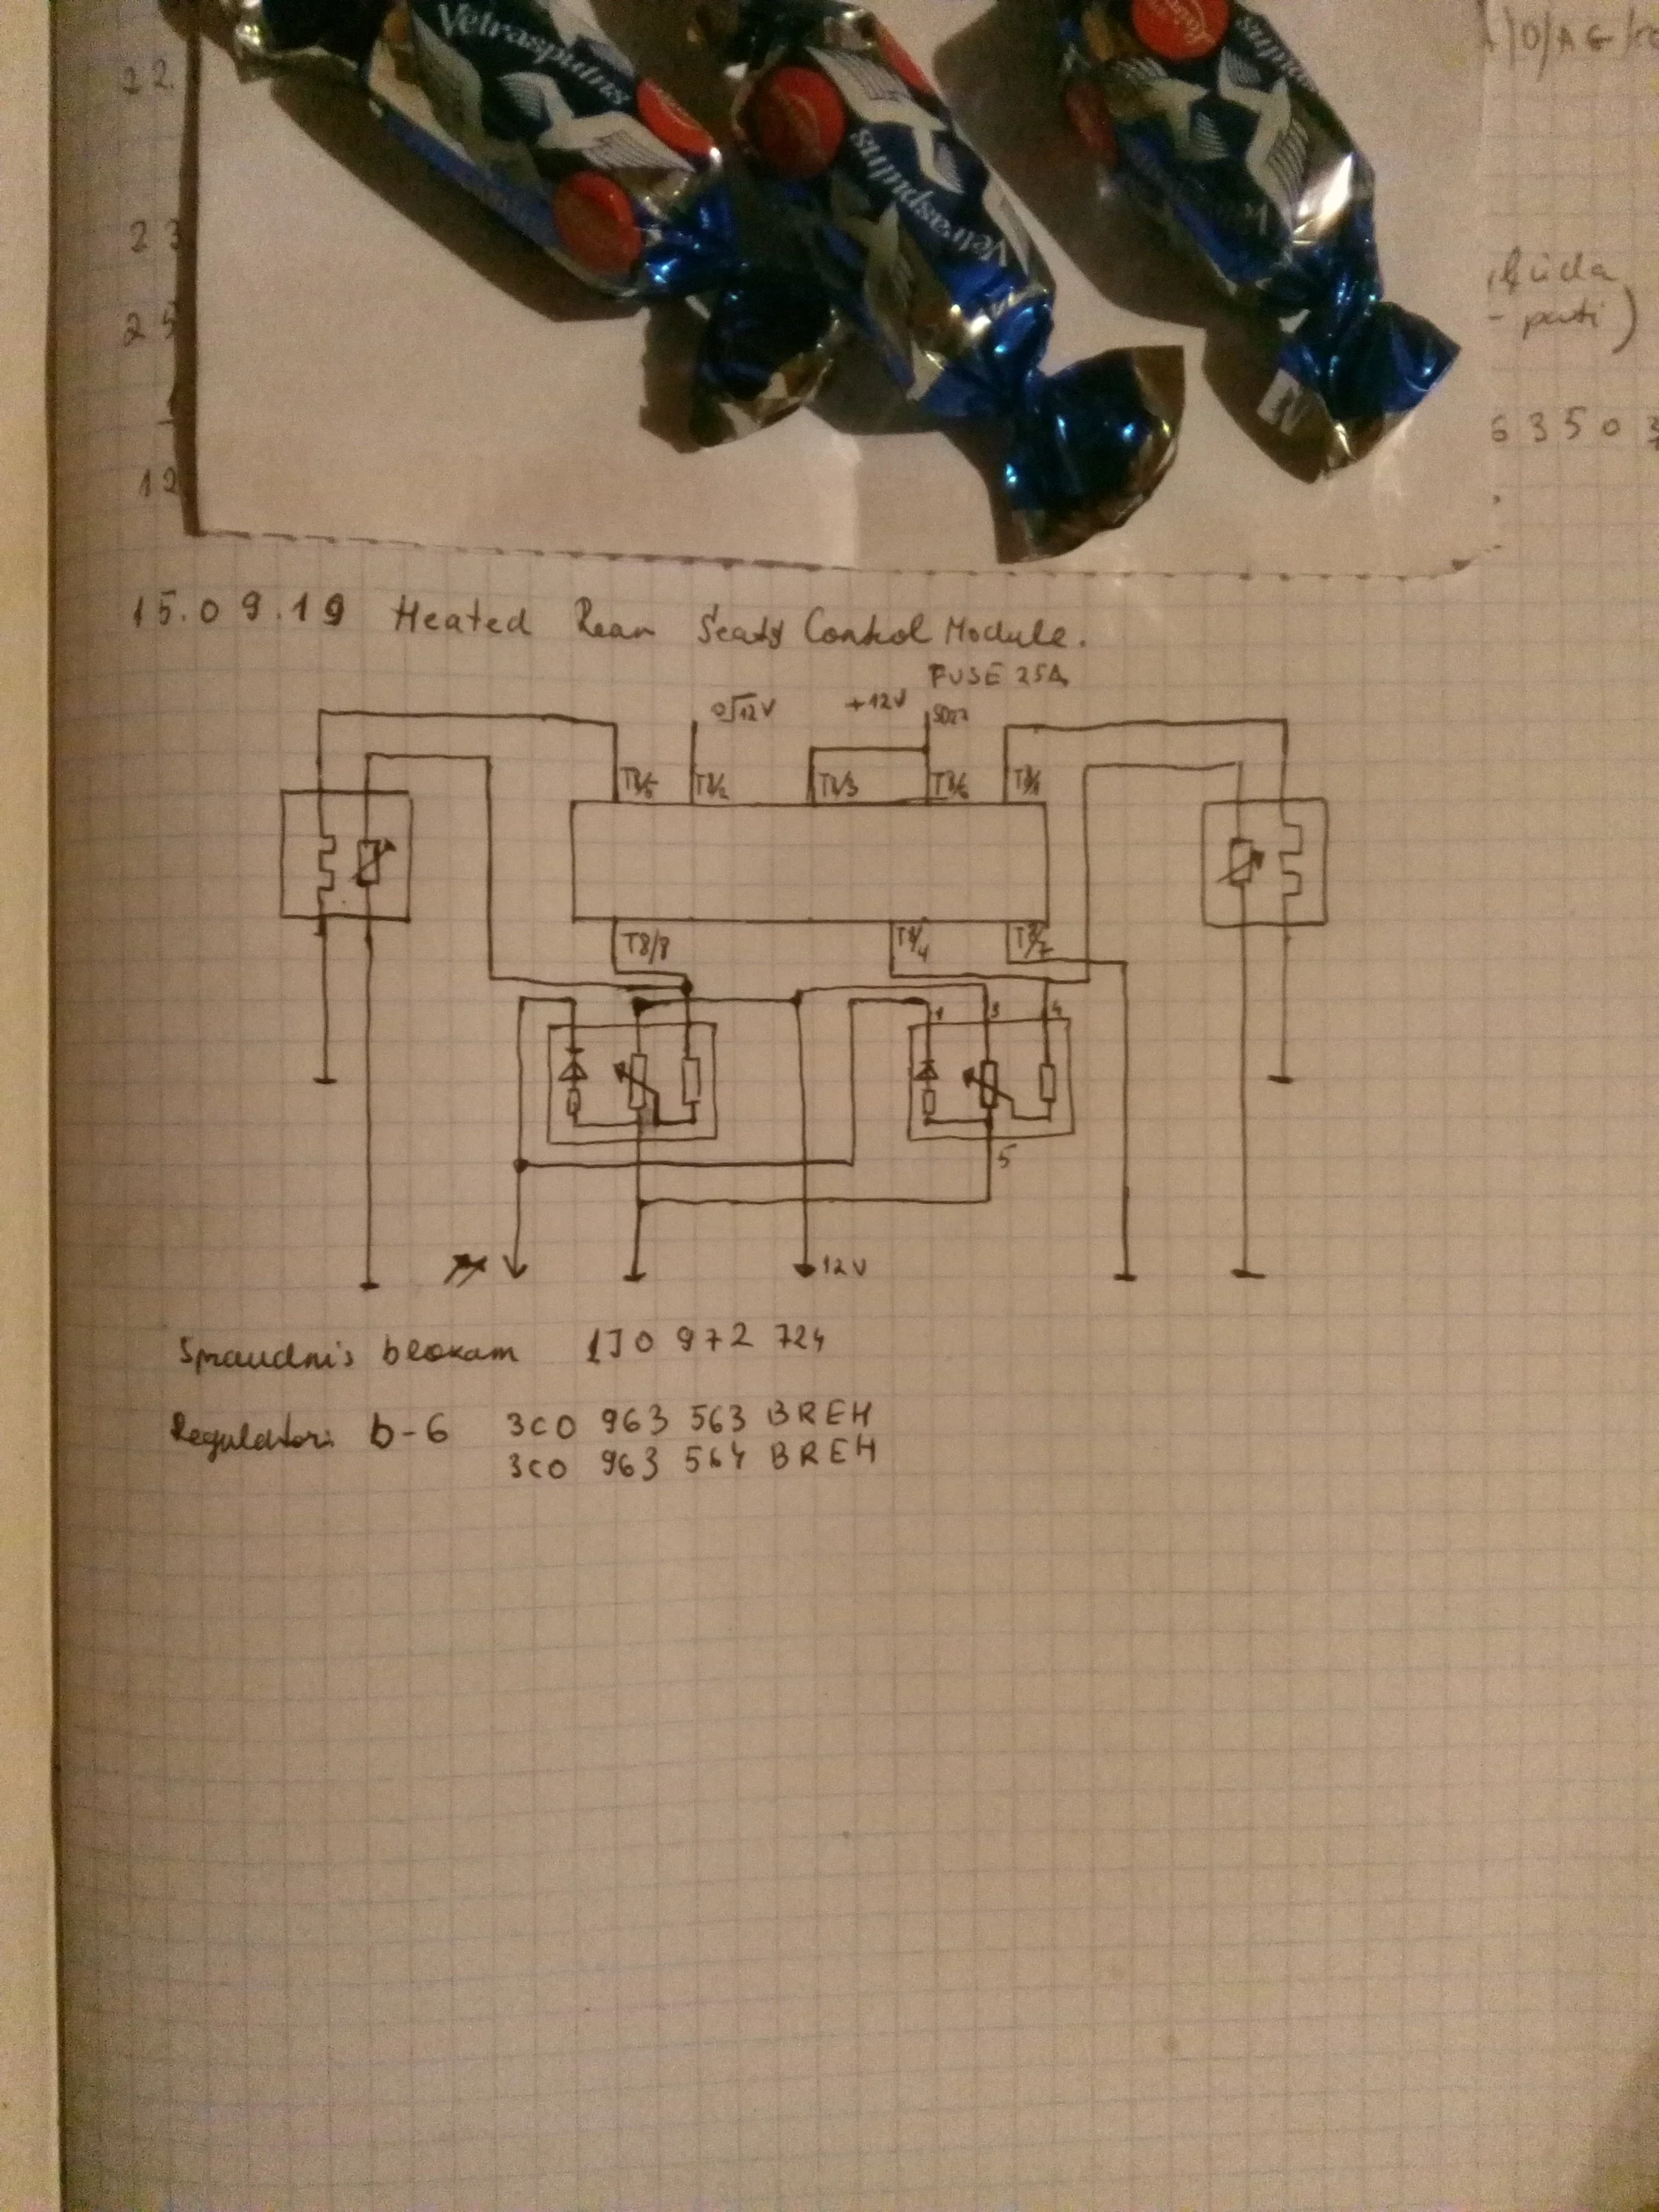 Vetraspuīns
Vetraspuīns
22.
23
25
12
ķūda
- pati)
63503
15.09.19 Heated Rear Seats Control Module.
FUSE 25A
0/12V +12V
T8/5 T8/2 T8/3 T8/6 T8/1
T8/8 T8/4 T8/7
1 3 4
5
12V
Spraudnis blokam 1J0 972 724
Regulatori b-6 3C0 963 563 B REH
3C0 963 564 B REH